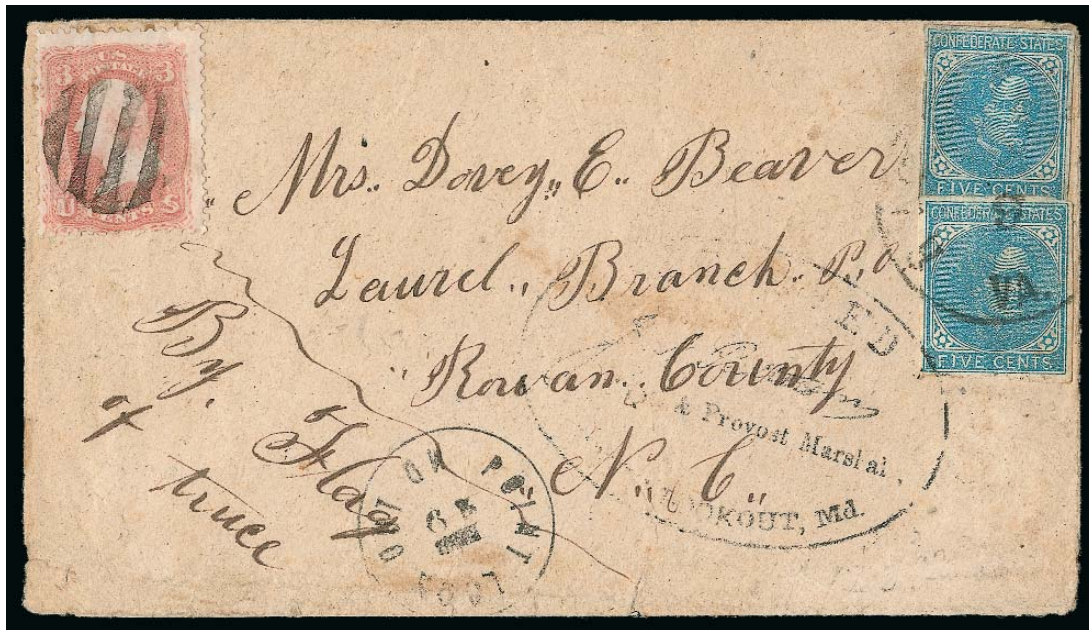 3 U.S. POSTAGE 3
U THREE CENTS S
CONFEDERATE STATES
FIVE CENTS
CONFEDERATE STATES
FIVE CENTS
VA.
Mrs. Dovey,, E.. Beaver
Laurel.. Branch. P. O
Rowan.. County
,,N.. C,,
By. Flag
of
truce
ED
& Provost Marshal.
LOOKOUT, Md.
POINT LOOKOUT